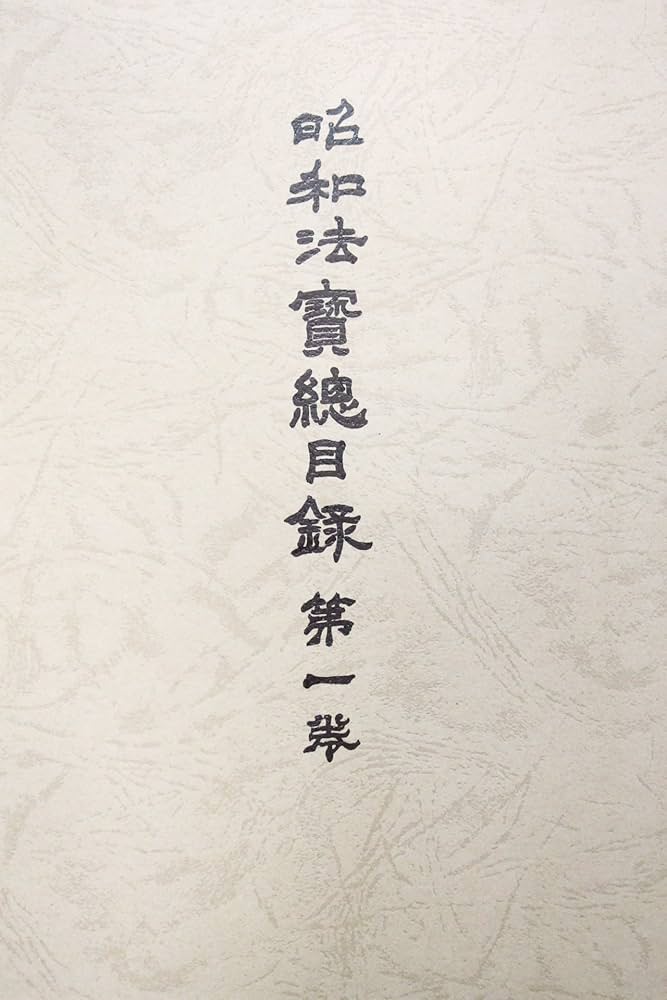 昭和法寶總目録 第一卷